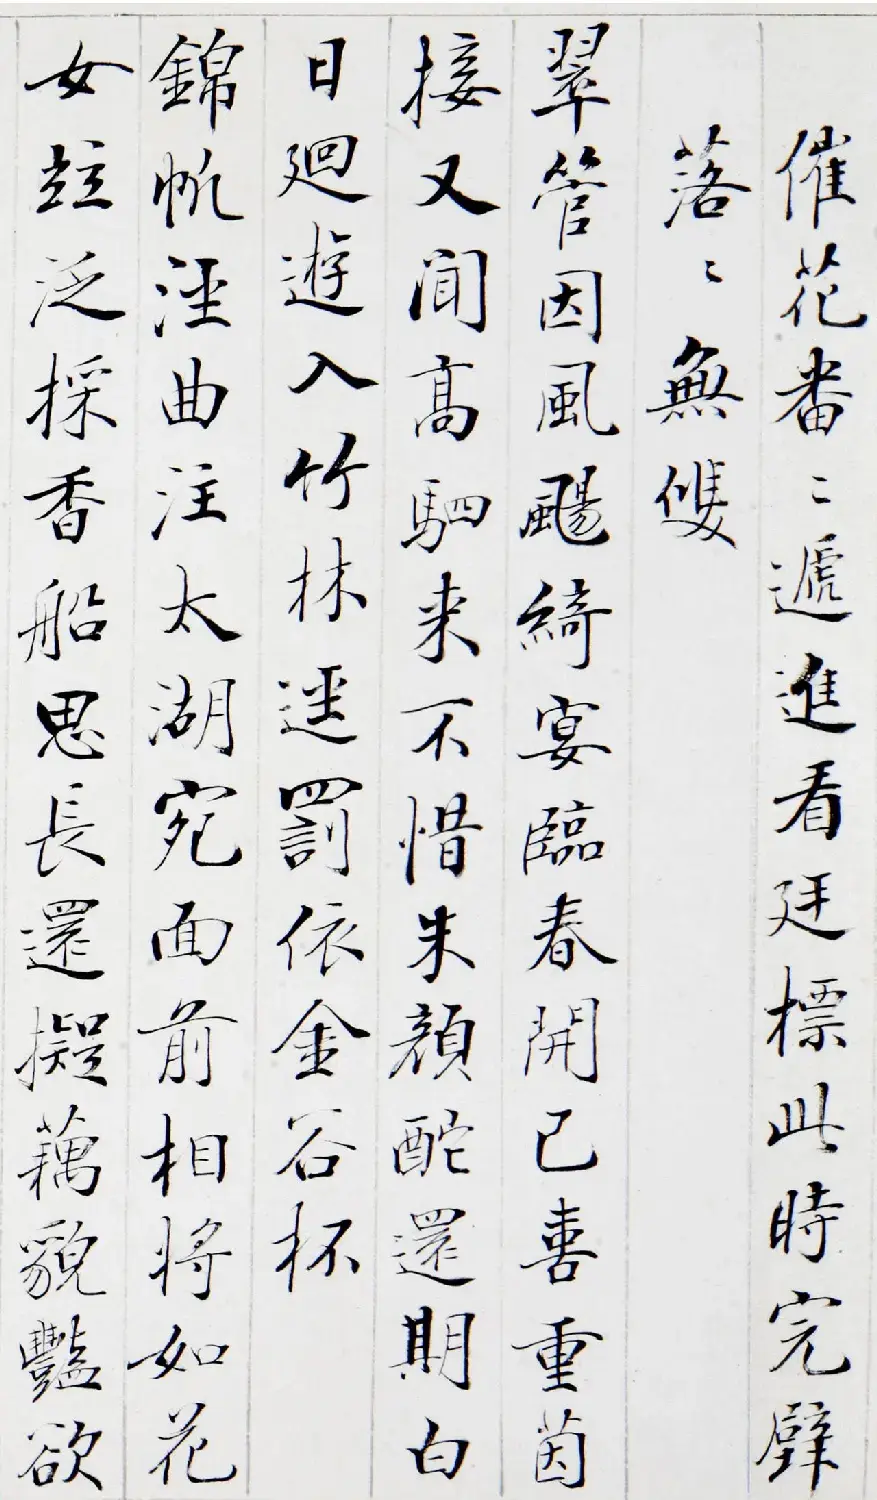 催花番〻遞進看廷標此時完璧
落〻無雙
翠管因風颺綺宴臨春開已喜重茵
接又聞高駟来不惜朱顔酡還期白
日廻遊入竹林逕罰依金谷杯
錦帆涇曲注太湖宛面前相將如花
女竝泛採香船思長還擬藕貌豔欲